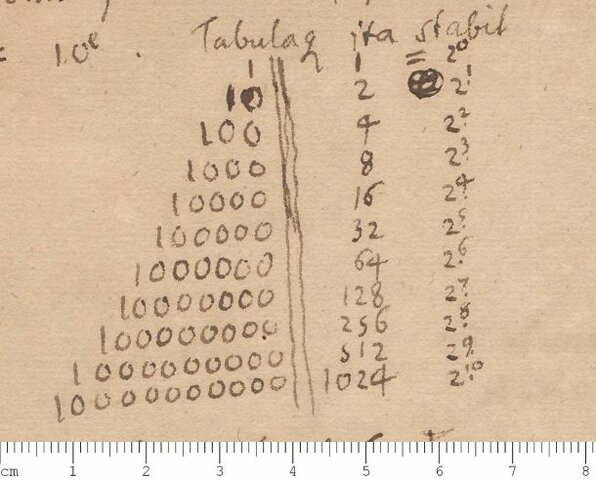 10e. Tabulaq jta stabit
1 1 = 2⁰
10 2 2¹
100 4 2²
1000 8 2³
10000 16 2⁴
100000 32 2⁵
1000000 64 2⁶
10000000 128 2⁷
100000000 256 2⁸
1000000000 512 2⁹
10000000000 1024 2¹⁰
cm 1 2 3 4 5 6 7 8